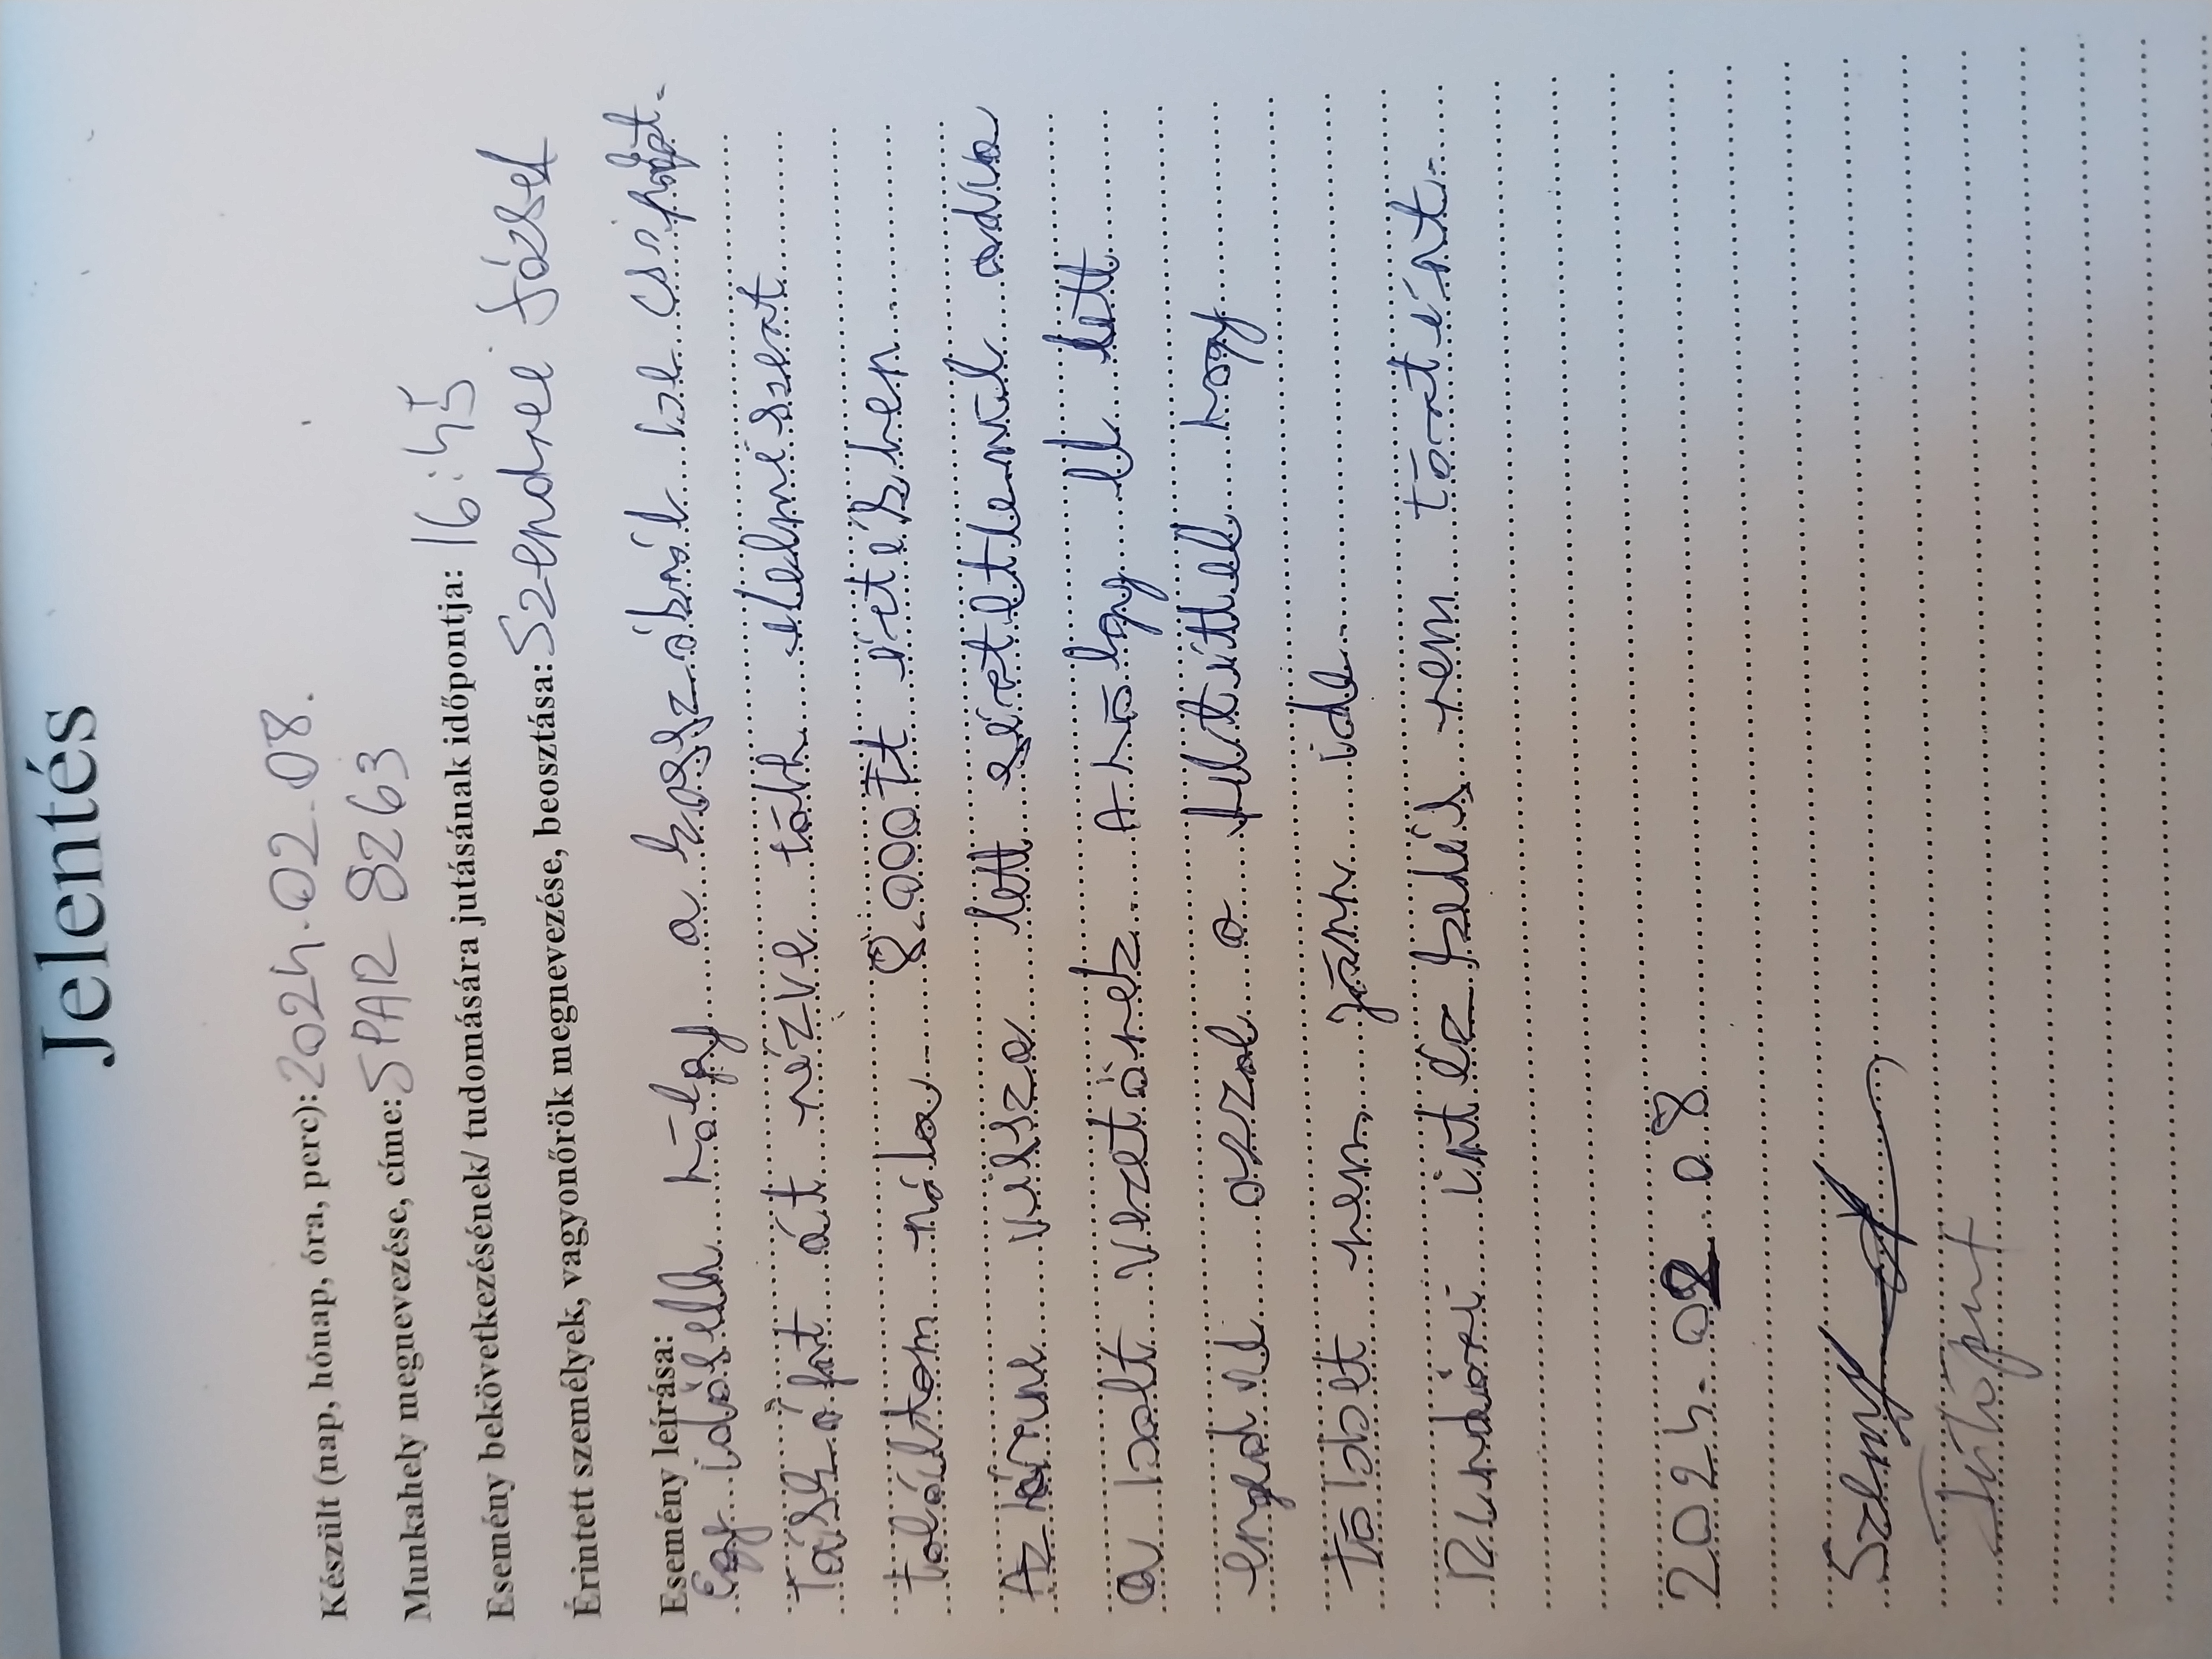 Jelentés
Készült (nap, hónap, óra, perc): 2024.02.08.
Munkahely megnevezése, címe: SPAR 8263
Esemény bekövetkezésének/ tudomására jutásának időpontja: 16:45
Érintett személyek, vagyonőrök megnevezése, beosztása: Szendrei József
Esemény leírása:
Egy idősebb hölgy a kasszáknál be csipőgt.
Táskáját át nézve több élelmiszert
találtam nála 8.000Ft értékben.
Az vissza lett sértetlenül adva
a bolt vezetőnek. A hölgy el lett
engedve azzal a feltétellel hogy
Többet nem jönn ide.
Rendőri intézkedés nem történt.
2024.02.08